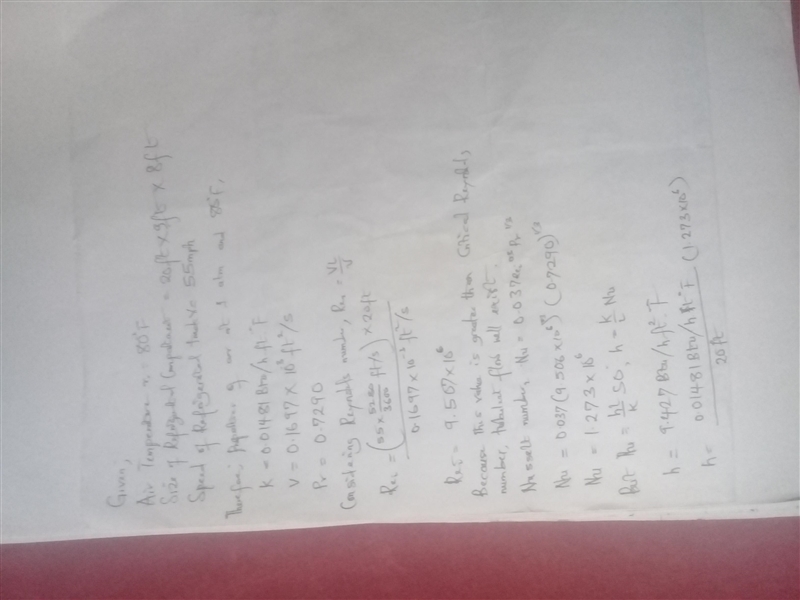 Given,
Air Temperature = 80°F
Size of Refrigerated Compartment = 20ft × 9ft × 8ft
Speed of Refrigerated truck V = 55mph
Therefore, properties of air at 1 atm and 80°F,
K = 0.01481 Btu/h.ft.°F
V = 0.1697 × 10⁻³ ft²/s
Pr = 0.7290
Considering Reynolds number, ReL = VL/V
ReL = (55 × 5280/3600 ft/s) × 20ft
0.1697 × 10⁻³ ft²/s
ReL = 9.507 × 10⁶
Because this value is greater than Critical Reynolds,
number, turbulent flow will exist.
Nusselt number, Nu = 0.037 ReL^0.8 Pr^1/3
Nu = 0.037 (9.506 × 10⁶)^0.8 (0.7290)^1/3
Nu = 1.273 × 10⁶
But Nu = hL/K so, h = K/L Nu
h = 9.427 Btu/h.ft².°F
h = 0.01481 Btu/h.ft.°F (1.273 × 10⁶)
20ft